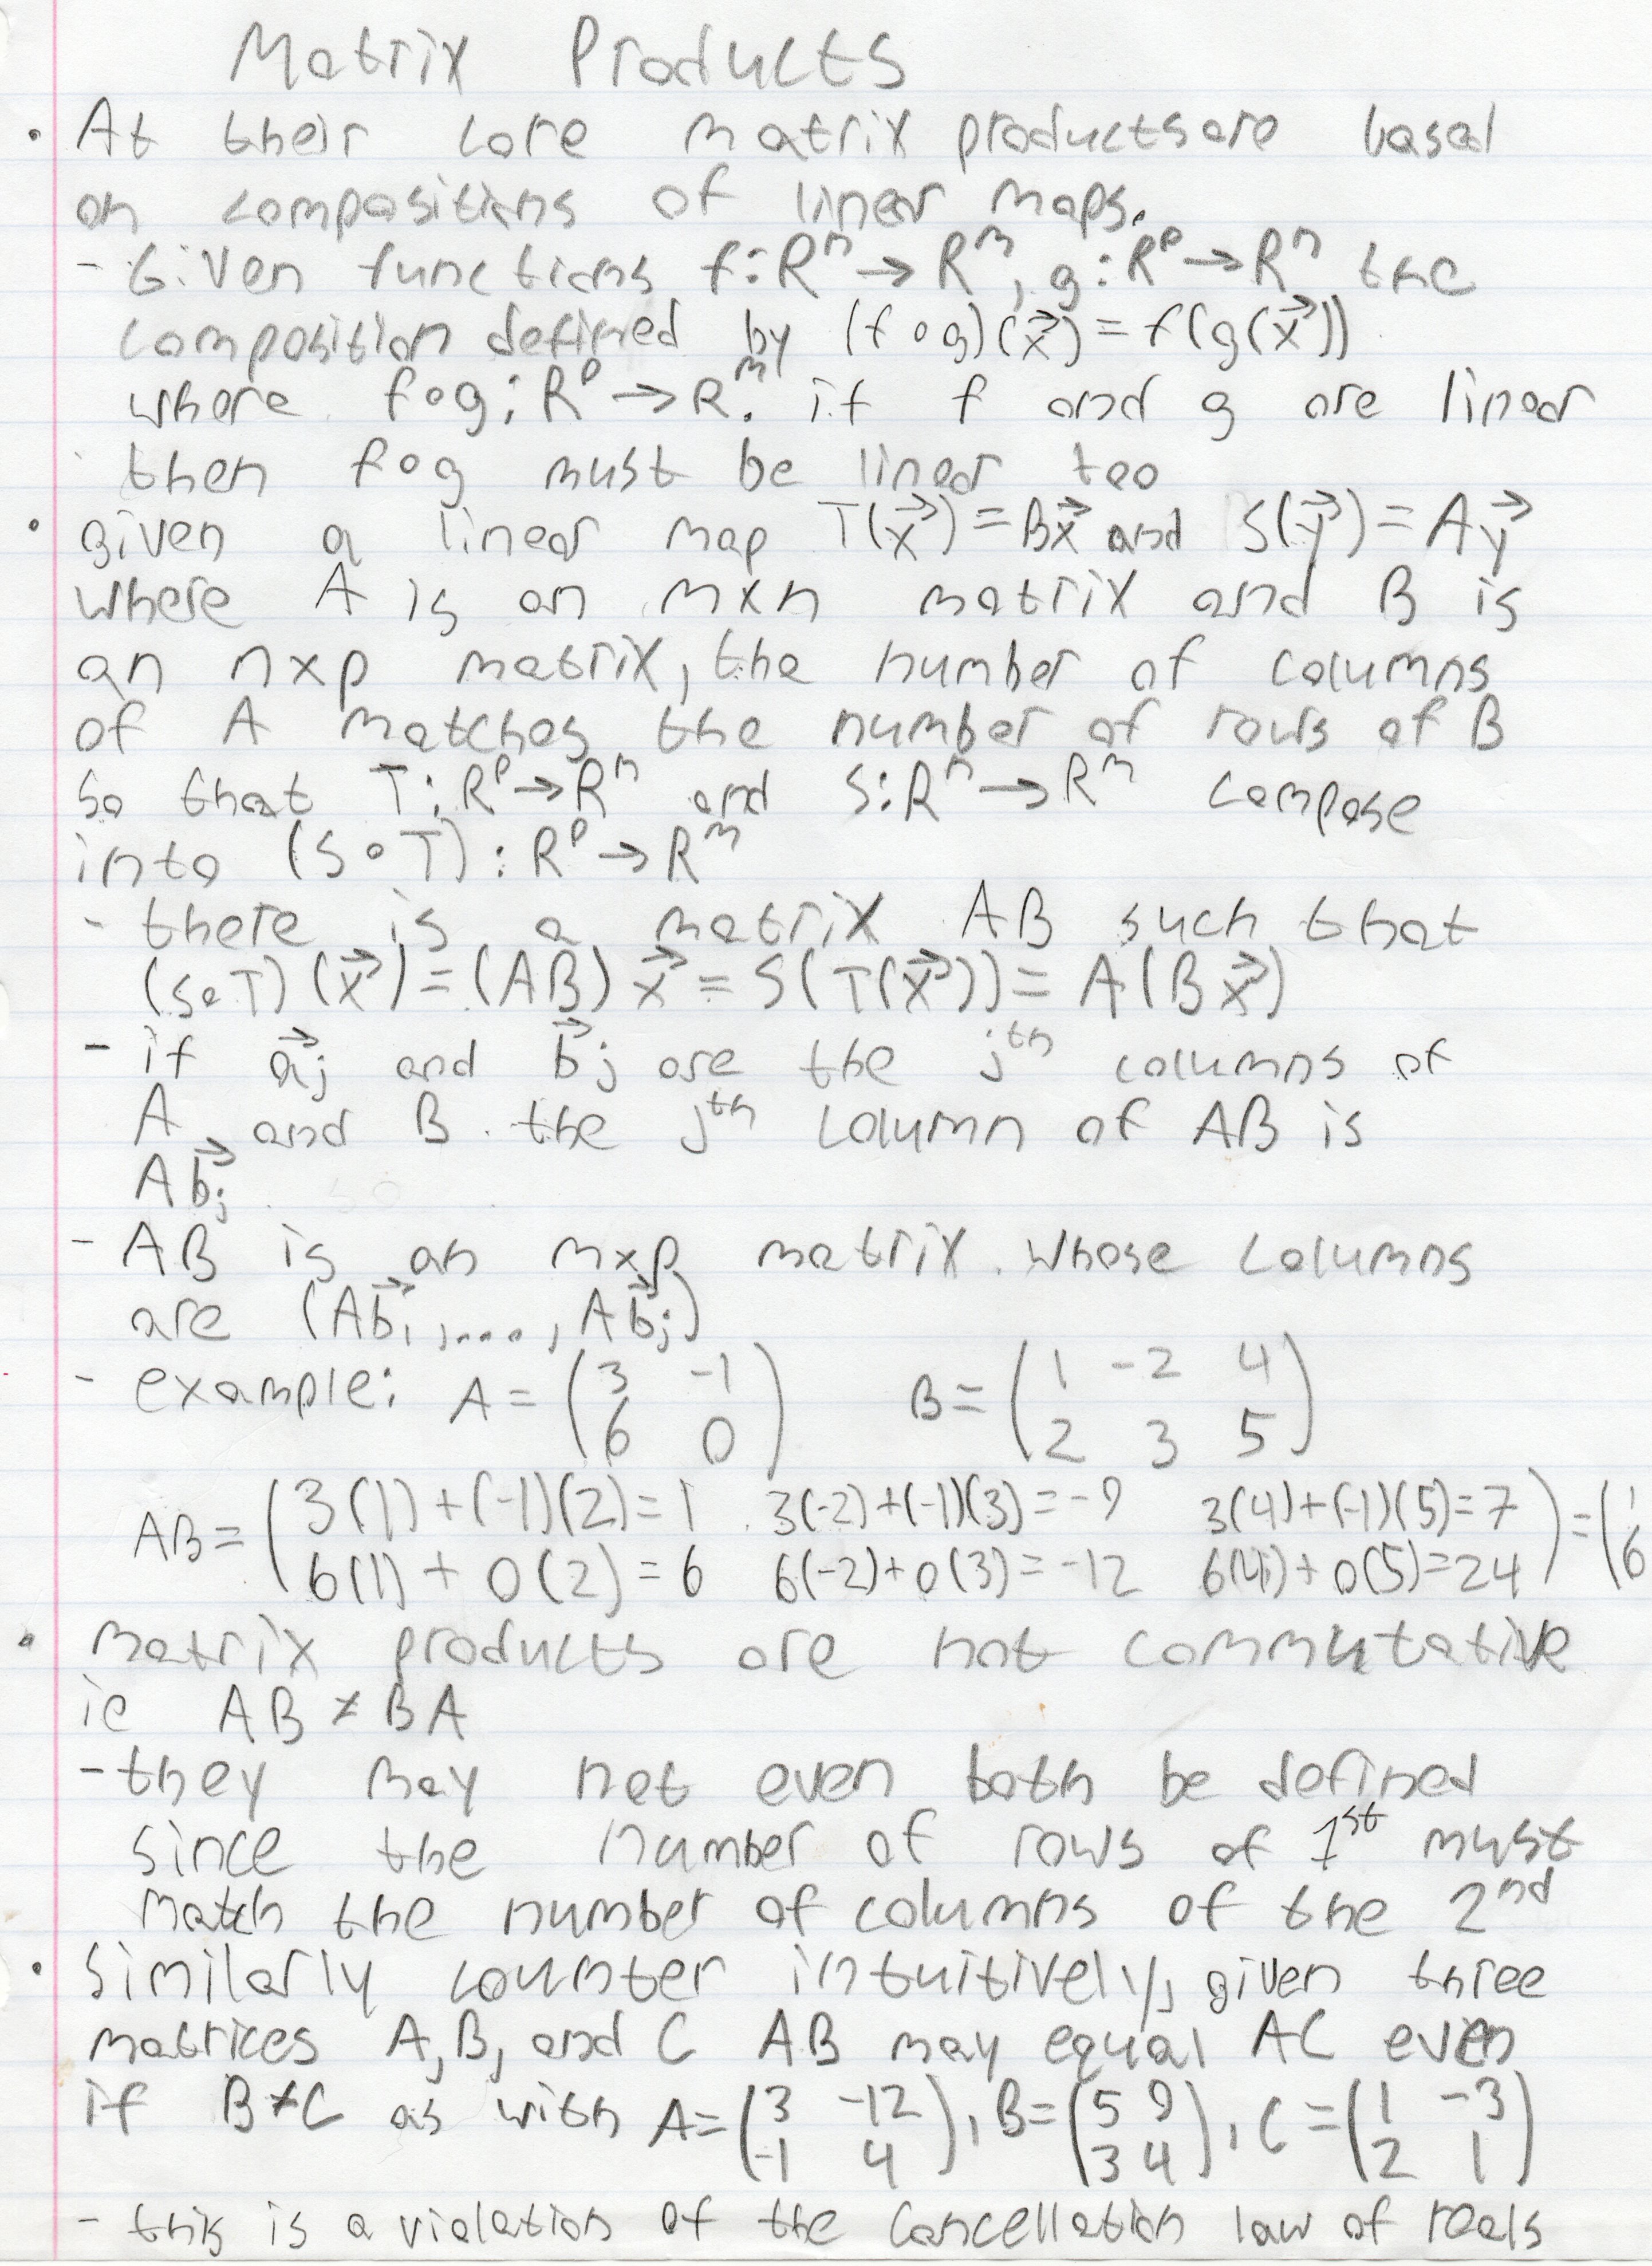 Matrix Products
• At their core matrix products are based
on compositions of linear maps.
- Given functions f: Rⁿ → Rᵐ, g: Rᵖ → Rⁿ the
composition defined by (f∘g)(x⃗) = f(g(x⃗))
where f∘g: Rᵖ → Rᵐ. if f and g are linear
then f∘g must be linear too
• given a linear map T(x⃗) = Bx⃗ and S(y⃗) = Ay⃗
where A is an m×n matrix and B is
an n×p matrix, the number of columns
of A matches the number of rows of B
so that T: Rᵖ → Rⁿ and S: Rⁿ → Rᵐ compose
into (S∘T): Rᵖ → Rᵐ
- there is a matrix AB such that
(S∘T)(x⃗) = (AB)x⃗ = S(T(x⃗)) = A(Bx⃗)
- if a⃗j and b⃗j are the jᵗʰ columns of
A and B. the jᵗʰ column of AB is
Ab⃗j
- AB is an m×p matrix. whose columns
are (Ab⃗₁, ..., Ab⃗j)
- example: A = (3 -1 B = (1 -2 4
6 0) 2 3 5)
AB = (3(1)+(-1)(2)=1 3(-2)+(-1)(3)=-9 3(4)+(-1)(5)=7 ) = (1
6(1)+0(2)=6 6(-2)+0(3)=-12 6(4)+0(5)=24 6
• matrix products are not commutative
ie AB ≠ BA
- they may not even both be defined
since the number of rows of 1ˢᵗ must
match the number of columns of the 2ⁿᵈ
• Similarly counter intuitively, given three
matrices A, B, and C AB may equal AC even
if B≠C as with A = (3 -12 ), B = (5 9 ), C = (1 -3
-1 4 3 4 2 1)
- this is a violation of the cancellation law of reals